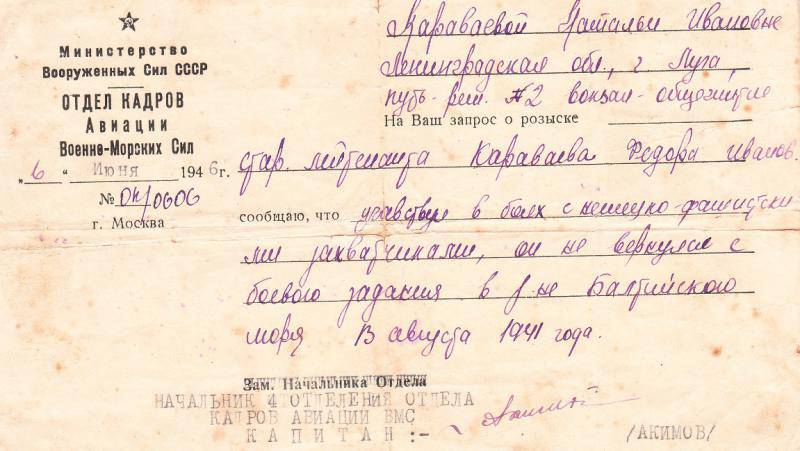 Министерство
Вооруженных Сил СССР
ОТДЕЛ КАДРОВ
Авиации
Военно-Морских Сил
„6" Июня 1946г.
№ 0606
г. Москва
Караваевой Натальи Ивановне
Ленинградская обл., г Луга,
путь-рем. №2 вокзал-общежитие
На Ваш запрос о розыске
стар. лейтенанта Караваева Федора Иванов.
сообщаю, что участвуя в боях с немецко-фашистски
ми захватчиками, он не вернулся с
боевого задания в р-не Балтийского
моря 13 августа 1941 года.
Зам. Начальника Отдела
НАЧАЛЬНИК 4 ОТДЕЛЕНИЯ ОТДЕЛА
КАДРОВ АВИАЦИИ ВМС
КАПИТАН :-
/АКИМОВ/